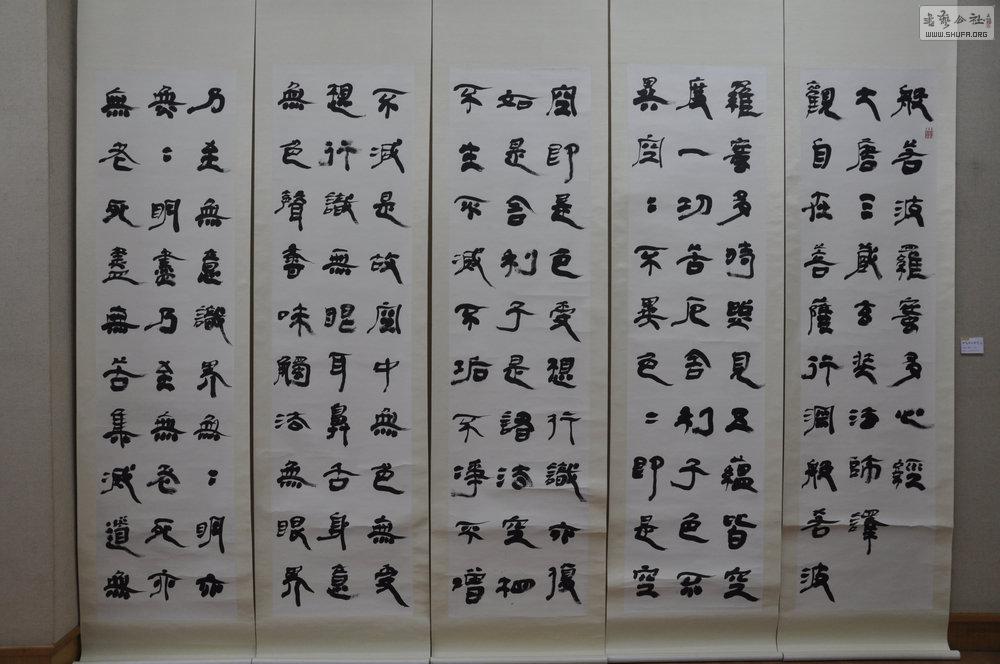 般若波羅蜜多心經
大唐三藏玄奘法師譯
觀自在菩薩行深般若波
羅蜜多時照見五蘊皆空
度一切苦厄舍利子色不
異空：不異色：即是空
空即是色受想行識亦復
如是舍利子是諸法空相
不生不滅不垢不淨不增
不減是故空中無色無受
想行識無眼耳鼻舌身意
無色聲香味觸法無眼界
乃至無意識界無：明亦
無：明盡乃至無老死亦
無老死盡無苦集滅道無
書藝公社
WWW.SHUFA.ORG